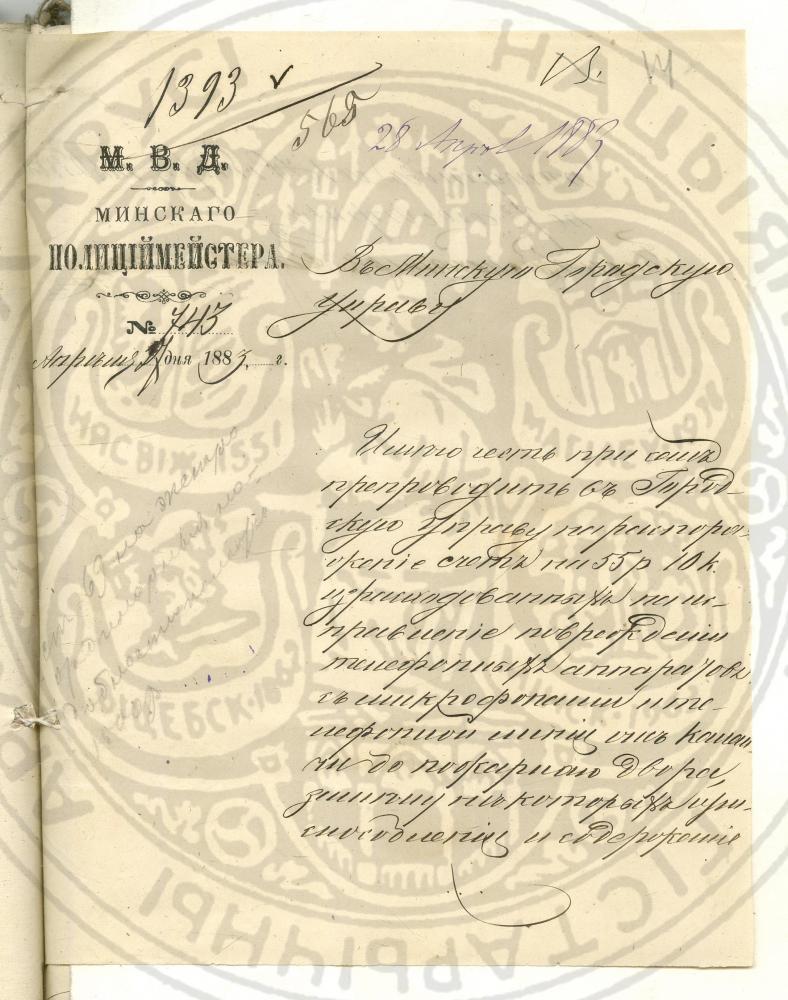 1393
565
13.
14
28 Апрѣл 1883
М. В. Д.
МИНСКАГО
ПОЛИЦІЙМЕЙСТЕРА.
№ 743
Апрѣля 27 дня 1883 г.
Въ Минскую Городскую
Управу
Имѣю честь при семъ
препроводить въ Город-
скую Управу на распоря-
женіе счетъ на 55 р 10 к.
израсходованныхъ на ис-
правленіе поврежденій
телефонныхъ аппаратовъ
съ микрофонами и те-
лефонной линіи отъ Калан-
чи до пожарнаго двора,
нѣкоторыхъ при-
способленій и содержаніе
НАЦЫЯ
БЕЛАРУСІ
ГІСТАРЫЧНЫ
НЯСВІЖ 1551
ВІЦЕБСК